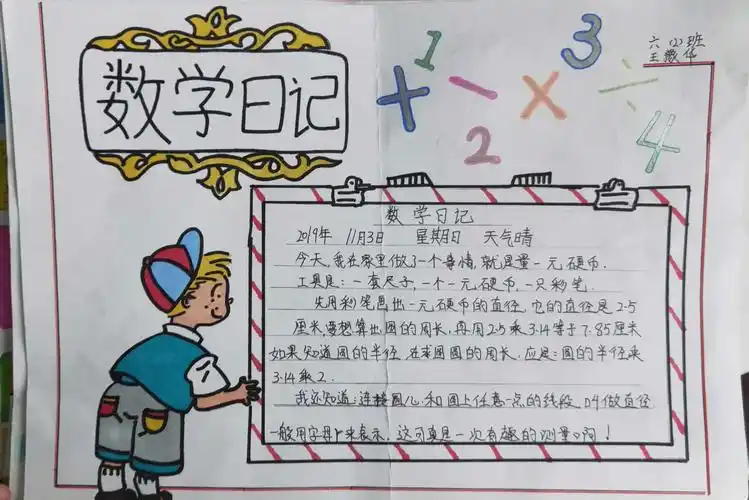 数学日记
+ 1 - 2 × 3 ÷ 4
六(2)班
王薇华
数学日记
2019年 11月3日 星期日 天气晴
今天,我在家里做了一个事情,就是量一元硬币.
工具是:一套尺子,一个一元硬币,一只彩笔.
先用彩笔画出一元硬币的直径,它的直径是2.5
厘米,要想算出圆的周长,再用2.5乘3.14等于7.85厘米
如果知道圆的半径,在求圆的周长,应是:圆的半径乘
3.14乘2.
我还知道:连接圆心和圆上任意一点的线段,叫做直径
一般用字母r来表示,这可真是一次有趣的测量啊!